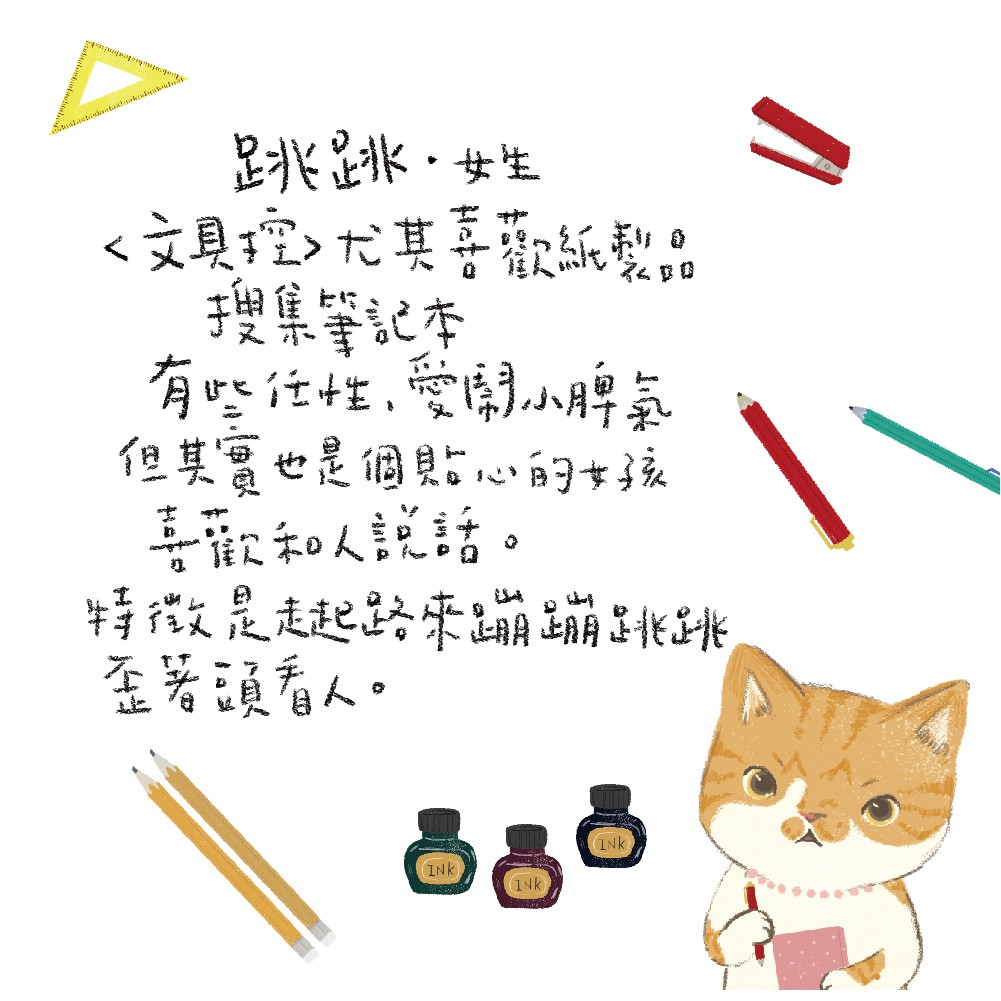 跳跳·女生
<文具控>尤其喜歡紙製品
搜集筆記本
有些任性、愛鬧小脾氣
但其實也是個貼心的女孩
喜歡和人說話。
特徵是走起路來蹦蹦跳跳
歪著頭看人。
INK
INK
INK